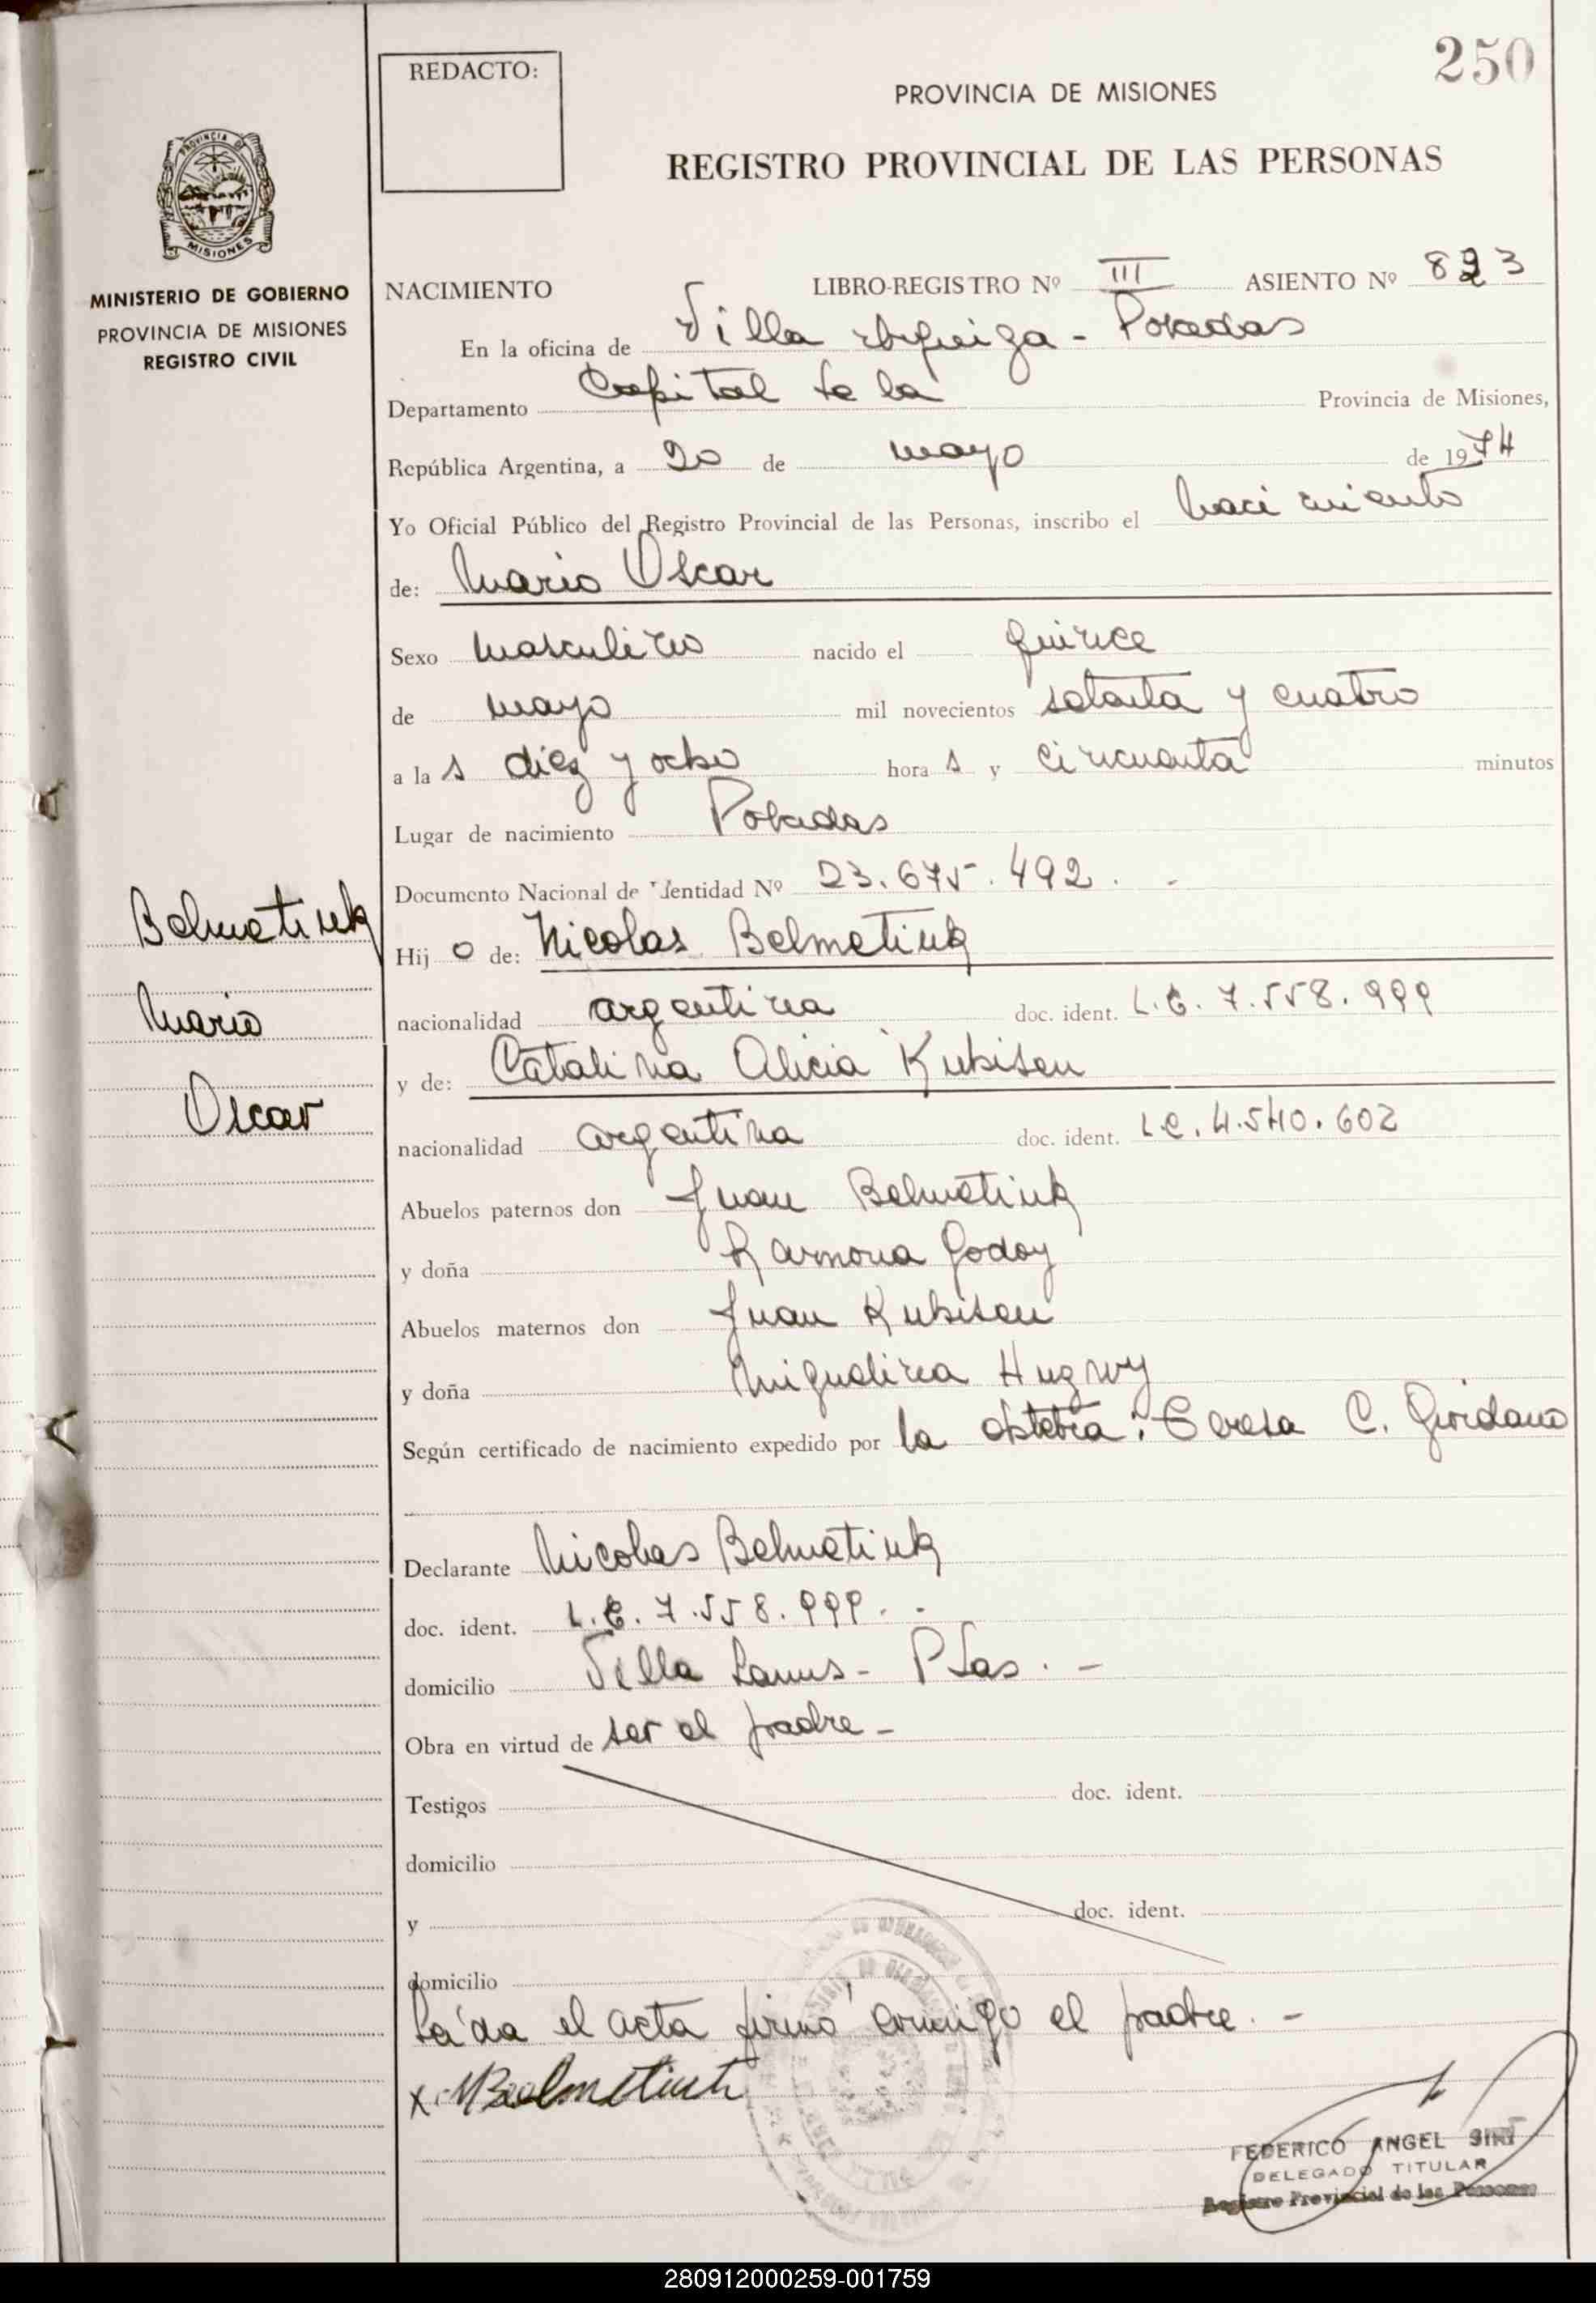 250
REDACTO:
PROVINCIA DE MISIONES
REGISTRO PROVINCIAL DE LAS PERSONAS
PROVINCIA DE
MISIONES
MINISTERIO DE GOBIERNO
PROVINCIA DE MISIONES
REGISTRO CIVIL
NACIMIENTO LIBRO-REGISTRO Nº III ASIENTO Nº 823
En la oficina de Villa Urquiza - Posadas
Departamento Capital de la Provincia de Misiones,
República Argentina, a 20 de mayo de 1974
Yo Oficial Público del Registro Provincial de las Personas, inscribo el nacimiento
de: Mario Oscar
Sexo masculino nacido el quince
de mayo mil novecientos setenta y cuatro
a las diez y ocho horas y cincuenta minutos
Lugar de nacimiento Posadas
Documento Nacional de Identidad Nº 23.675.492. -
Belmetiuk
Hijo de: Nicolas Belmetiuk
nacionalidad argentina doc. ident. L.E. 7.558.999
Mario
y de: Catalina Alicia Kubisen
Oscar
nacionalidad argentina doc. ident. L.C. 4.540.602
Abuelos paternos don Juan Belmetiuk
y doña Ramona Godoy
Abuelos maternos don Juan Kubisen
y doña Miguelina
Según certificado de nacimiento expedido por la obstetra: Teresa C. Giordano
Declarante Nicolas Belmetiuk
doc. ident. L.E. 7.558.999. -
domicilio Villa Lanus - Pdas. -
Obra en virtud de ser el padre -
Testigos doc. ident.
domicilio
y doc. ident.
domicilio
Leída el acta firmó conmigo el padre. -
x. NBelmetiuk
FEDERICO ANGEL
DELEGADO TITULAR
Registro Provincial de las Personas
280912000259-001759